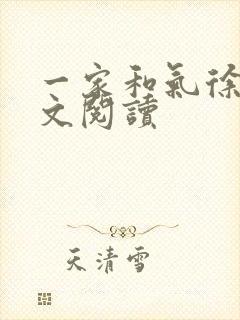 一家和氣徐
文閱讀
天清雪